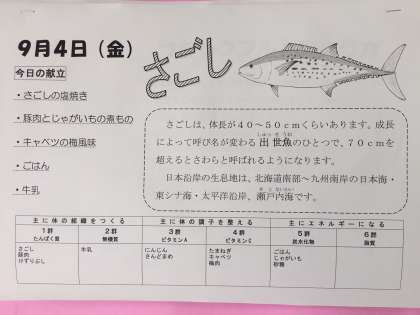 9月4日（金）
さごし
今日の献立
・さごしの塩焼き
・豚肉とじゃがいもの煮もの
・キャベツの梅風味
・ごはん
・牛乳
さごしは、体長が４０～５０ｃｍくらいあります。成長
によって呼び名が変わる出世魚のひとつで、７０ｃｍを
超えるとさわらと呼ばれるようになります。
日本沿岸の生息地は、北海道南部～九州南岸の日本海・
東シナ海・太平洋沿岸、瀬戸内海です。
主に体の組織をつくる 主に体の調子を整える 主にエネルギーになる
1群 2群 3群 4群 5群 6群
たんぱく質 無機質 ビタミンA ビタミンC 炭水化物 脂質
さごし 牛乳 にんじん たまねぎ ごはん
豚肉 さんどまめ キャベツ じゃがいも
けずりぶし 梅肉 砂糖